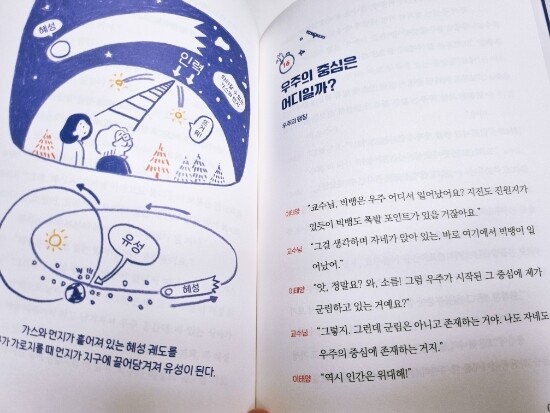 혜성
인력
유성
혜성
가스와 먼지가 흩어져 있는 혜성 궤도를
가 가로지를 때 먼지가 지구에 끌어당겨져 유성이 된다.
우주의 중심은
어디일까?
우주의 팽창
이태양 "교수님, 빅뱅은 우주 어디서 일어났어요? 지진도 진원지가
있듯이 빅뱅도 폭발 포인트가 있을 거잖아요."
교수님 "그걸 생각하며 자네가 앉아 있는, 바로 여기에서 빅뱅이 일
어났어."
이태양 "앗, 정말요? 와, 소름! 그럼 우주가 시작된 그 중심에 제가
군림하고 있는 거예요?"
교수님 "그렇지. 그런데 군림은 아니고 존재하는 거야. 나도 자네도
우주의 중심에 존재하는 거지."
이태양 "역시 인간은 위대해!"